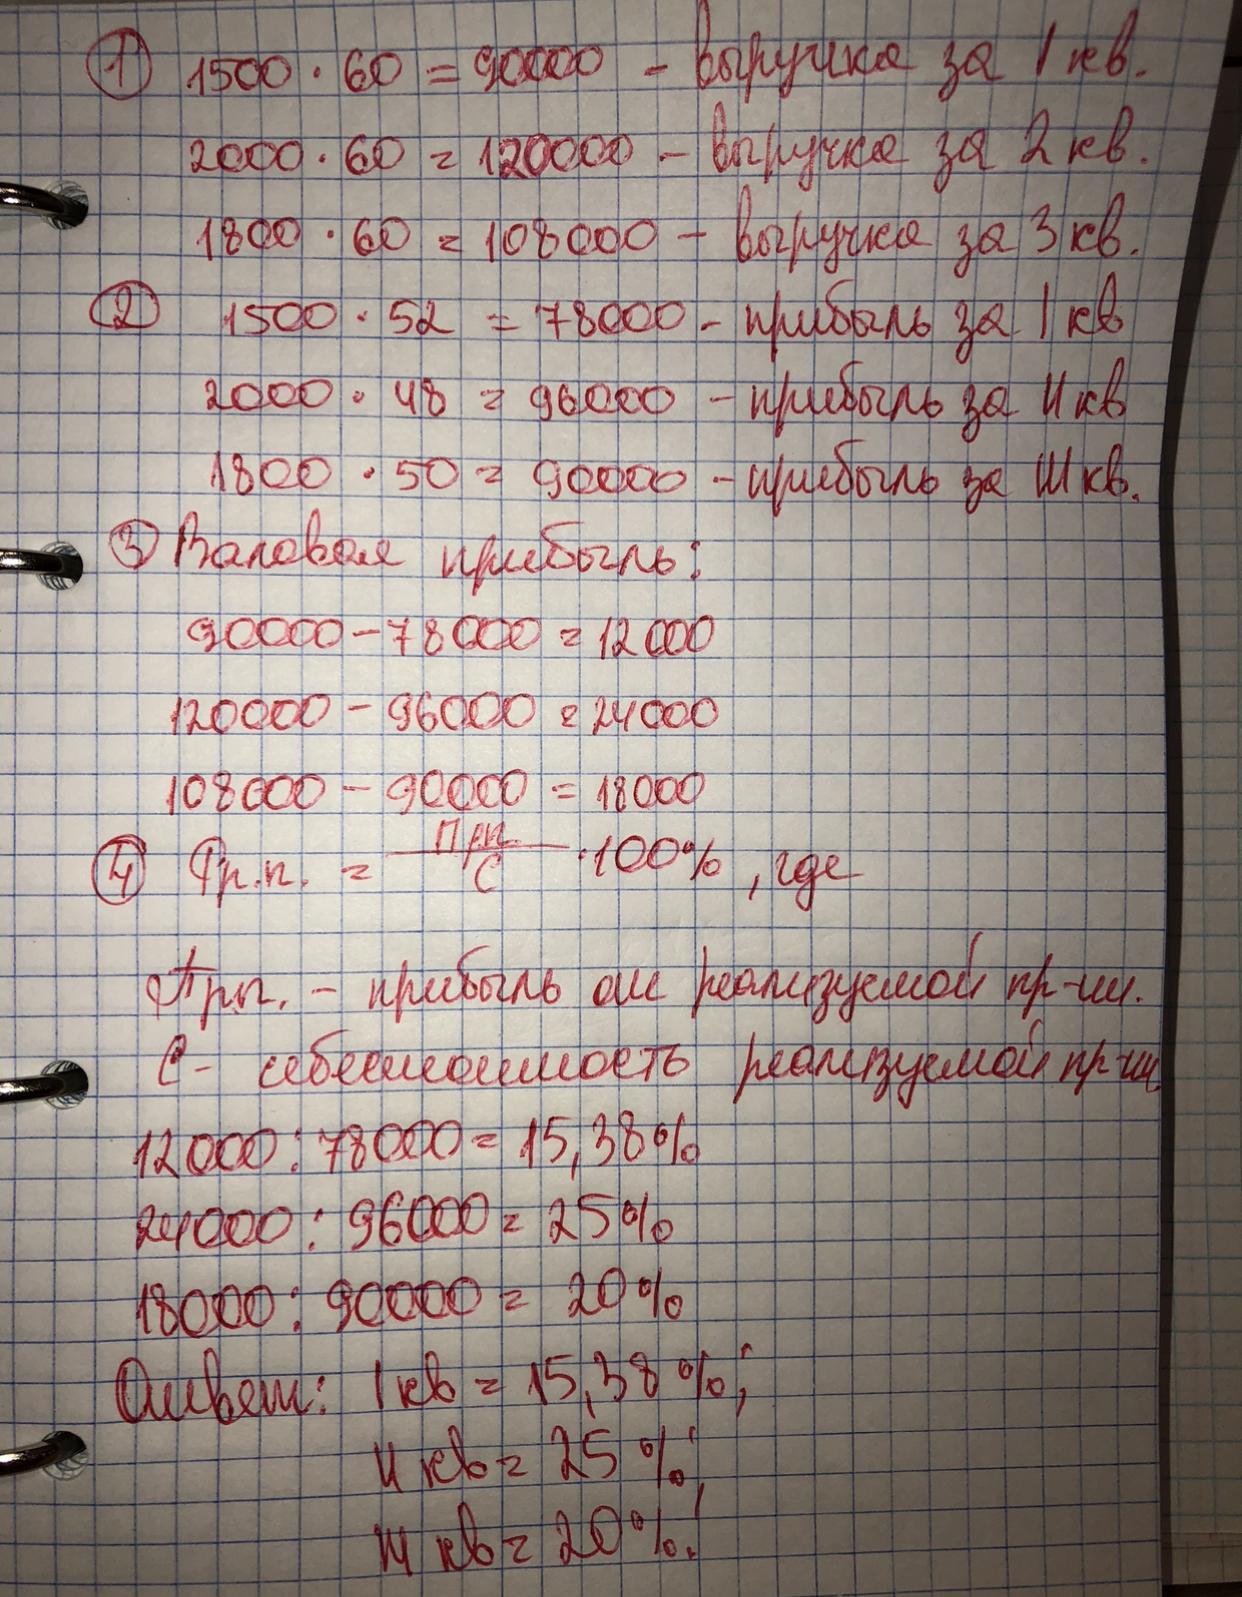 ① 1500 · 60 = 90000 - выручка за I кв.
2000 · 60 = 120000 - выручка за 2 кв.
1800 · 60 = 108000 - выручка за 3 кв.
② 1500 · 52 = 78000 - прибыль за I кв
2000 · 48 = 96000 - прибыль за II кв
1800 · 50 = 90000 - прибыль за III кв.
③ Валовая прибыль:
90000 - 78000 = 12000
120000 - 96000 = 24000
108000 - 90000 = 18000
④ Рр.п. = Прп. / С · 100% , где
Прп. - прибыль от реализуемой пр-ии.
С - себестоимость реализуемой пр-ии.
12000 : 78000 = 15,38%
24000 : 96000 = 25%
18000 : 90000 = 20%
Ответ: I кв = 15,38%;
II кв = 25%;
III кв = 20%.